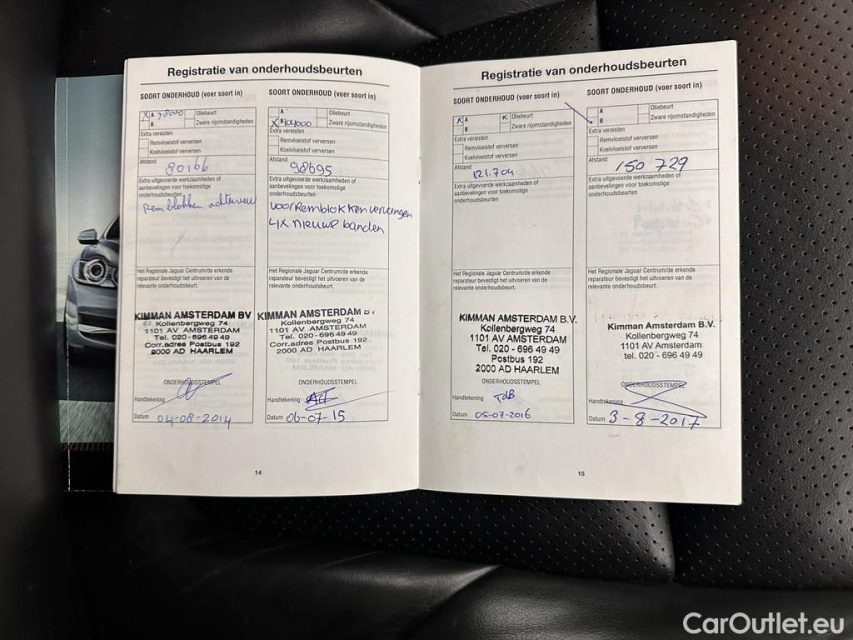 Registratie van onderhoudsbeurten
SOORT ONDERHOUD (voer soort in)
X A 90000
B
Oliebeurt
Zware rijomstandigheden
Extra vereisten
Remvloeistof verversen
Koelvloeistof verversen
Afstand
90166
Extra uitgevoerde werkzaamheden of
aanbevelingen voor toekomstige
onderhoudsbeurten
remblokken achter
Het Regionale Jaguar Centrum/de erkende
reparateur bevestigt het uitvoeren van de
relevante onderhoudsbeurt.
KIMMAN AMSTERDAM BV
Kollenbergweg 74
1101 AV AMSTERDAM
Tel. 020 - 696 49 49
Corr.adres Postbus 192
2000 AD HAARLEM
ONDERHOUDSSTEMPEL
Handtekening
Datum 04-08-2014
SOORT ONDERHOUD (voer soort in)
A
X B
Oliebeurt
Zware rijomstandigheden
Extra vereisten
Remvloeistof verversen
Koelvloeistof verversen
Afstand
98695
Extra uitgevoerde werkzaamheden of
aanbevelingen voor toekomstige
onderhoudsbeurten
voorremblokken vervangen
4x nieuwe banden
Het Regionale Jaguar Centrum/de erkende
reparateur bevestigt het uitvoeren van de
relevante onderhoudsbeurt.
KIMMAN AMSTERDAM BV
Kollenbergweg 74
1101 AV AMSTERDAM
Tel. 020 - 696 49 49
Corr.adres Postbus 192
2000 AD HAARLEM
ONDERHOUDSSTEMPEL
Handtekening
Datum 06-07-15
14
Registratie van onderhoudsbeurten
SOORT ONDERHOUD (voer soort in)
X A
B
X Oliebeurt
Zware rijomstandigheden
Extra vereisten
Remvloeistof verversen
Koelvloeistof verversen
Afstand
121.704
Extra uitgevoerde werkzaamheden of
aanbevelingen voor toekomstige
onderhoudsbeurten
Het Regionale Jaguar Centrum/de erkende
reparateur bevestigt het uitvoeren van de
relevante onderhoudsbeurt.
KIMMAN AMSTERDAM B.V.
Kollenbergweg 74
1101 AV AMSTERDAM
Tel. 020 - 696 49 49
Postbus 192
2000 AD HAARLEM
ONDERHOUDSSTEMPEL
Handtekening
Datum 05-07-2016
SOORT ONDERHOUD (voer soort in)
A
B
Oliebeurt
Zware rijomstandigheden
Extra vereisten
Remvloeistof verversen
Koelvloeistof verversen
Afstand
150 729
Extra uitgevoerde werkzaamheden of
aanbevelingen voor toekomstige
onderhoudsbeurten
Het Regionale Jaguar Centrum/de erkende
reparateur bevestigt het uitvoeren van de
relevante onderhoudsbeurt.
Kimman Amsterdam B.V.
Kollenbergweg 74
1101 AV Amsterdam
tel. 020 - 696 49 49
ONDERHOUDSSTEMPEL
Handtekening
Datum 3-8-2017
15
CarOutlet.eu